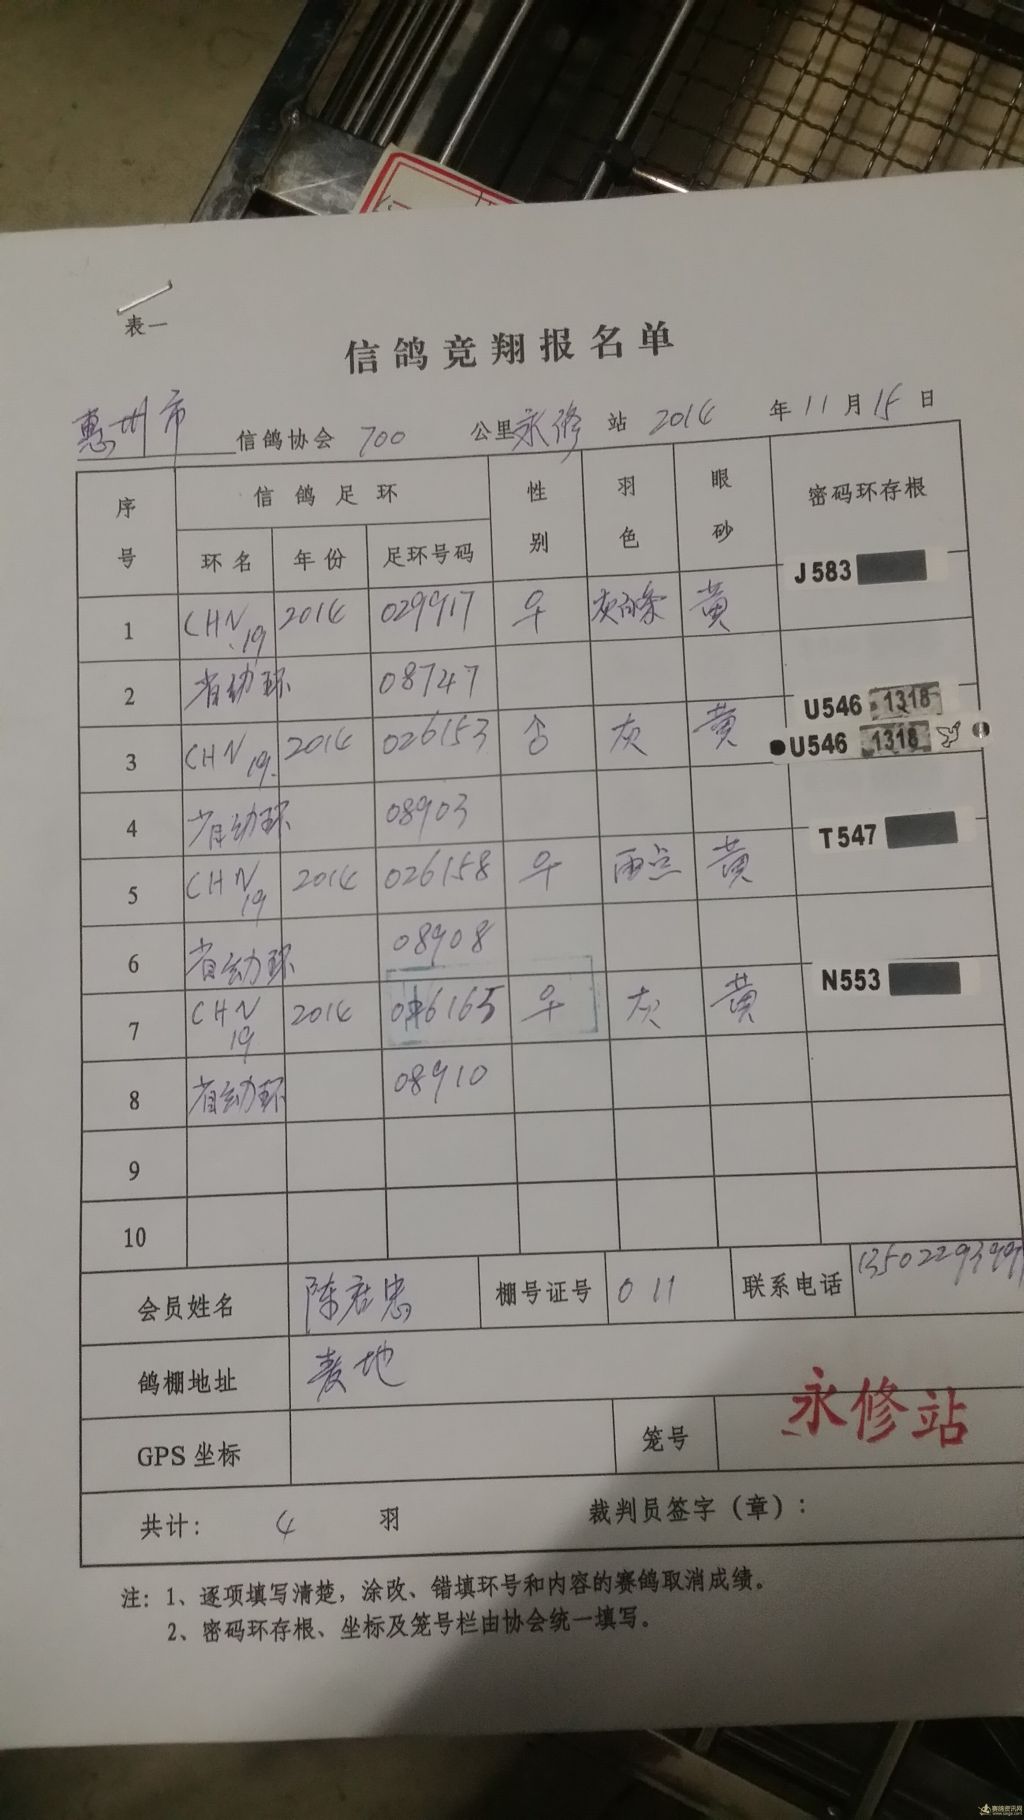 表一
信鸽竞翔报名单
惠州市 信鸽协会 700 公里 永修 站 2014 年 11 月 15 日
序号 信鸽足环 性别 羽色 眼砂 密码环存根
环名 年份 足环号码
J583
1 CHN 19 2014 029917 灰白条 黄
2 省动环 08747
U546 1318
3 CHN 19. 2014 026153 灰 黄 U546 1318
4 省动环 08903
T547
5 CHN 19 2014 026158 雨点 黄
6 省动环 08908
N553
7 CHN 19 2014 灰 黄
8 省动环 08910
9
10
会员姓名 陈君忠 棚号证号 011 联系电话
鸽棚地址 麦地
永修站
GPS坐标 笼号
共计: 4 羽 裁判员签字(章):
注: 1、逐项填写清楚,涂改、错填环号和内容的赛鸽取消成绩。
2、密码环存根、坐标及笼号栏由协会统一填写。
赛鸽资讯网